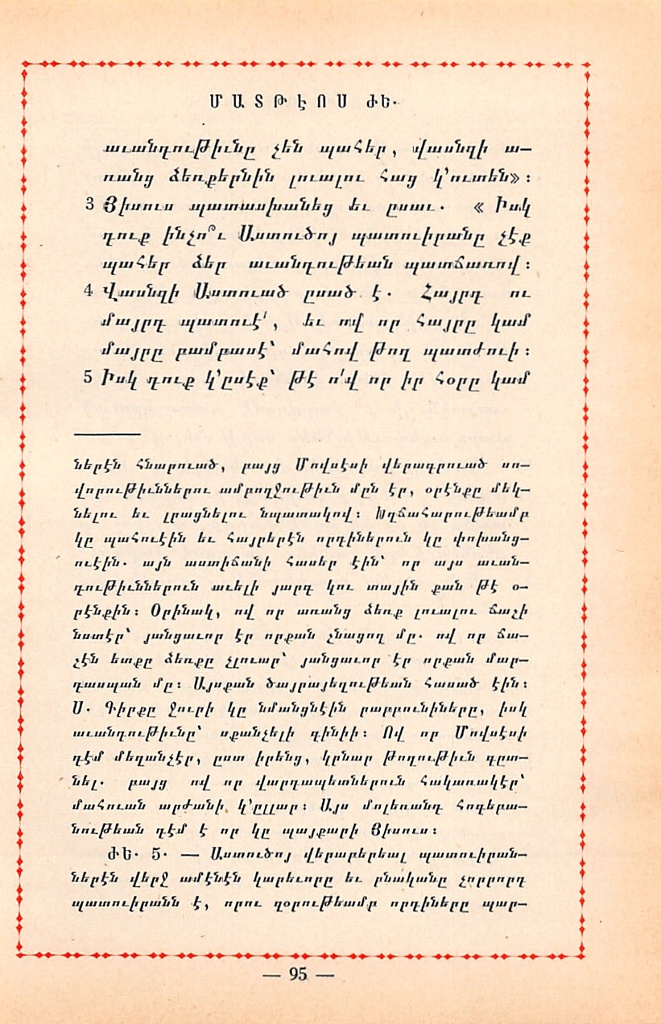 ՄԱՏԹԷՈՍ ԺԵ․
աւանդութիւնը չեն պահեր, վասնզի ա—
ռանց ձեռքերնին լուալու հաց կ՚ուտեն»։
3 Յիսուս պատասխանեց եւ ըսաւ․ « Իսկ
դուք ինչո՞ւ Աստուծոյ պատուիրանը չէք
պահեր ձեր աւանդութեան պատճառով։
4 Վասնզի Աստուած ըսած է․ Հայրդ ու
մայրդ պատուէ՛, եւ ով որ հայրը կամ
մայրը բամբասէ՝ մահով թող պատժուի։
5 Իսկ դուք կ՚ըսէք՝ թէ ո՛վ որ իր հօրը կամ
ներէն հնարուած, բայց Մովսէսի վերագրուած սո—
վորութիւններու ամբողջութիւն մըն էր, օրէնքը մեկ—
նելու եւ լրացնելու նպատակով։ Խղճահարութեամբ
կը պահուէին եւ հայրերէն որդիներուն կը փոխանց—
ուէին․ այն աստիճանի հասեր էին՝ որ այս աւան—
դութիւններուն աւելի յարգ կու տային քան թէ օ—
րէնքին։ Օրինակ, ով որ առանց ձեռք լուալու ճաշի
նստէր՝ յանցաւոր էր որքան շնացող մը․ ով որ ճա—
շէն ետքը ձեռքը չլուար՝ յանցաւոր էր որքան մար—
դասպան մը։ Այսքան ծայրայեղութեան հասած էին։
Ս․ Գիրքը ջուրի կը նմանցնէին րաբբունիները, իսկ
աւանդութիւնը՝ սքանչելի գինիի։ Ով որ Մովսէսի
դէմ մեղանչէր, ըստ իրենց, կրնար թողութիւն գըտ—
նել․ բայց ով որ վարդապետներուն հակառակէր՝
մահուան արժանի կ՚ըլլար։ Այս մոլեռանդ հոգերա—
նութեան դէմ է որ կը պայքարի Յիսուս։
ԺԵ․ 5․ — Աստուծոյ վերաբերեալ պատուիրան—
ներէն վերջ ամէնէն կարեւորը եւ բնականը չորրորդ
պատուիրանն է, որու զօրութեամբ որդիները պար—
— 95 —